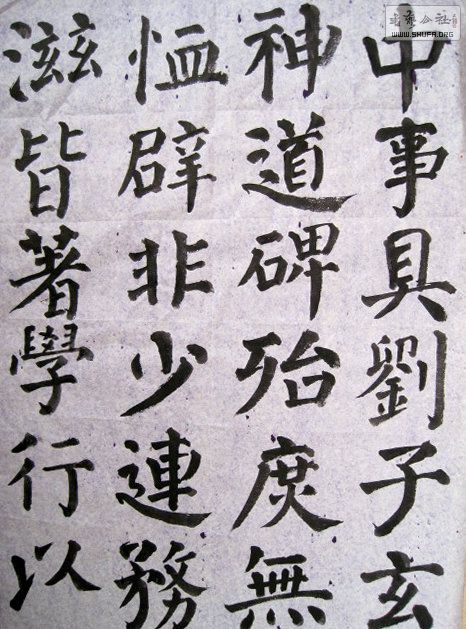 中事具劉子玄
神道碑殆庶無
恤辟非少連務
滋皆著學行以
WWW.SHUFA.ORG